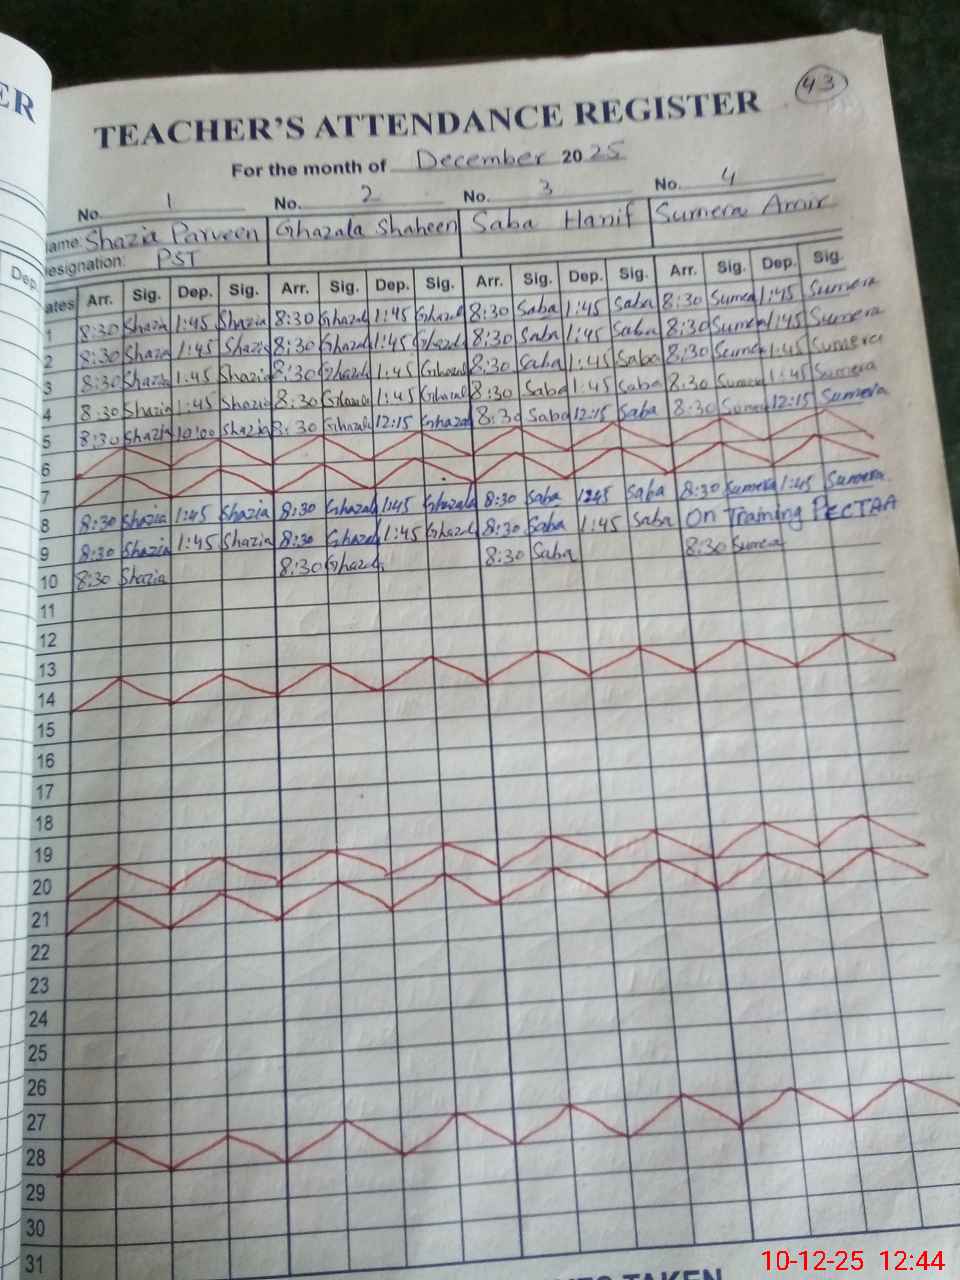 43
ER
TEACHER'S ATTENDANCE REGISTER
For the month of December 2025
No. 1 No. 2 No. 3 No. 4
ame: Shazia Parveen Ghazala Shaheen Saba Hanif Sumera Amir
esignation: PST
Dep.
ates Arr. Sig. Dep. Sig. Arr. Sig. Dep. Sig. Arr. Sig. Dep. Sig. Arr. Sig. Dep. Sig.
1 8:30 Shazia 1:45 Shazia 8:30 Ghazal 1:45 Ghazal 8:30 Saba 1:45 Saba 8:30 Sumera 1:45 Sumera
2 8:30 Shazia 1:45 Shazia 8:30 Ghazal 1:45 Ghazal 8:30 Saba 1:45 Saba 8:30 Sumera 1:45 Sumera
3 8:30 Shazia 1:45 Shazia 8:30 Ghazal 1:45 Ghazal 8:30 Saba 1:45 Saba 8:30 Sumera 1:45 Sumera
4 8:30 Shazia 1:45 Shazia 8:30 Ghazal 1:45 Ghazal 8:30 Saba 1:45 Saba 8:30 Sumera 1:45 Sumera
5 8:30 Shazia 10:00 Shazia 8:30 Ghazal 12:15 Ghazal 8:30 Saba 12:15 Saba 8:30 Sumera 12:15 Sumera
6
7
8 8:30 Shazia 1:45 Shazia 8:30 Ghazal 1:45 Ghazala 8:30 Saba 1:45 Saba 8:30 Sumera 1:45 Sumera
9 8:30 Shazia 1:45 Shazia 8:30 Ghazal 1:45 Ghazal 8:30 Saba 1:45 Saba On Training PECTAA
10 8:30 Shazia 8:30 Ghazal 8:30 Saba 8:30 Sumera
11
12
13
14
15
16
17
18
19
20
21
22
23
24
25
26
27
28
29
30
31
TAKEN
10-12-25 12:44